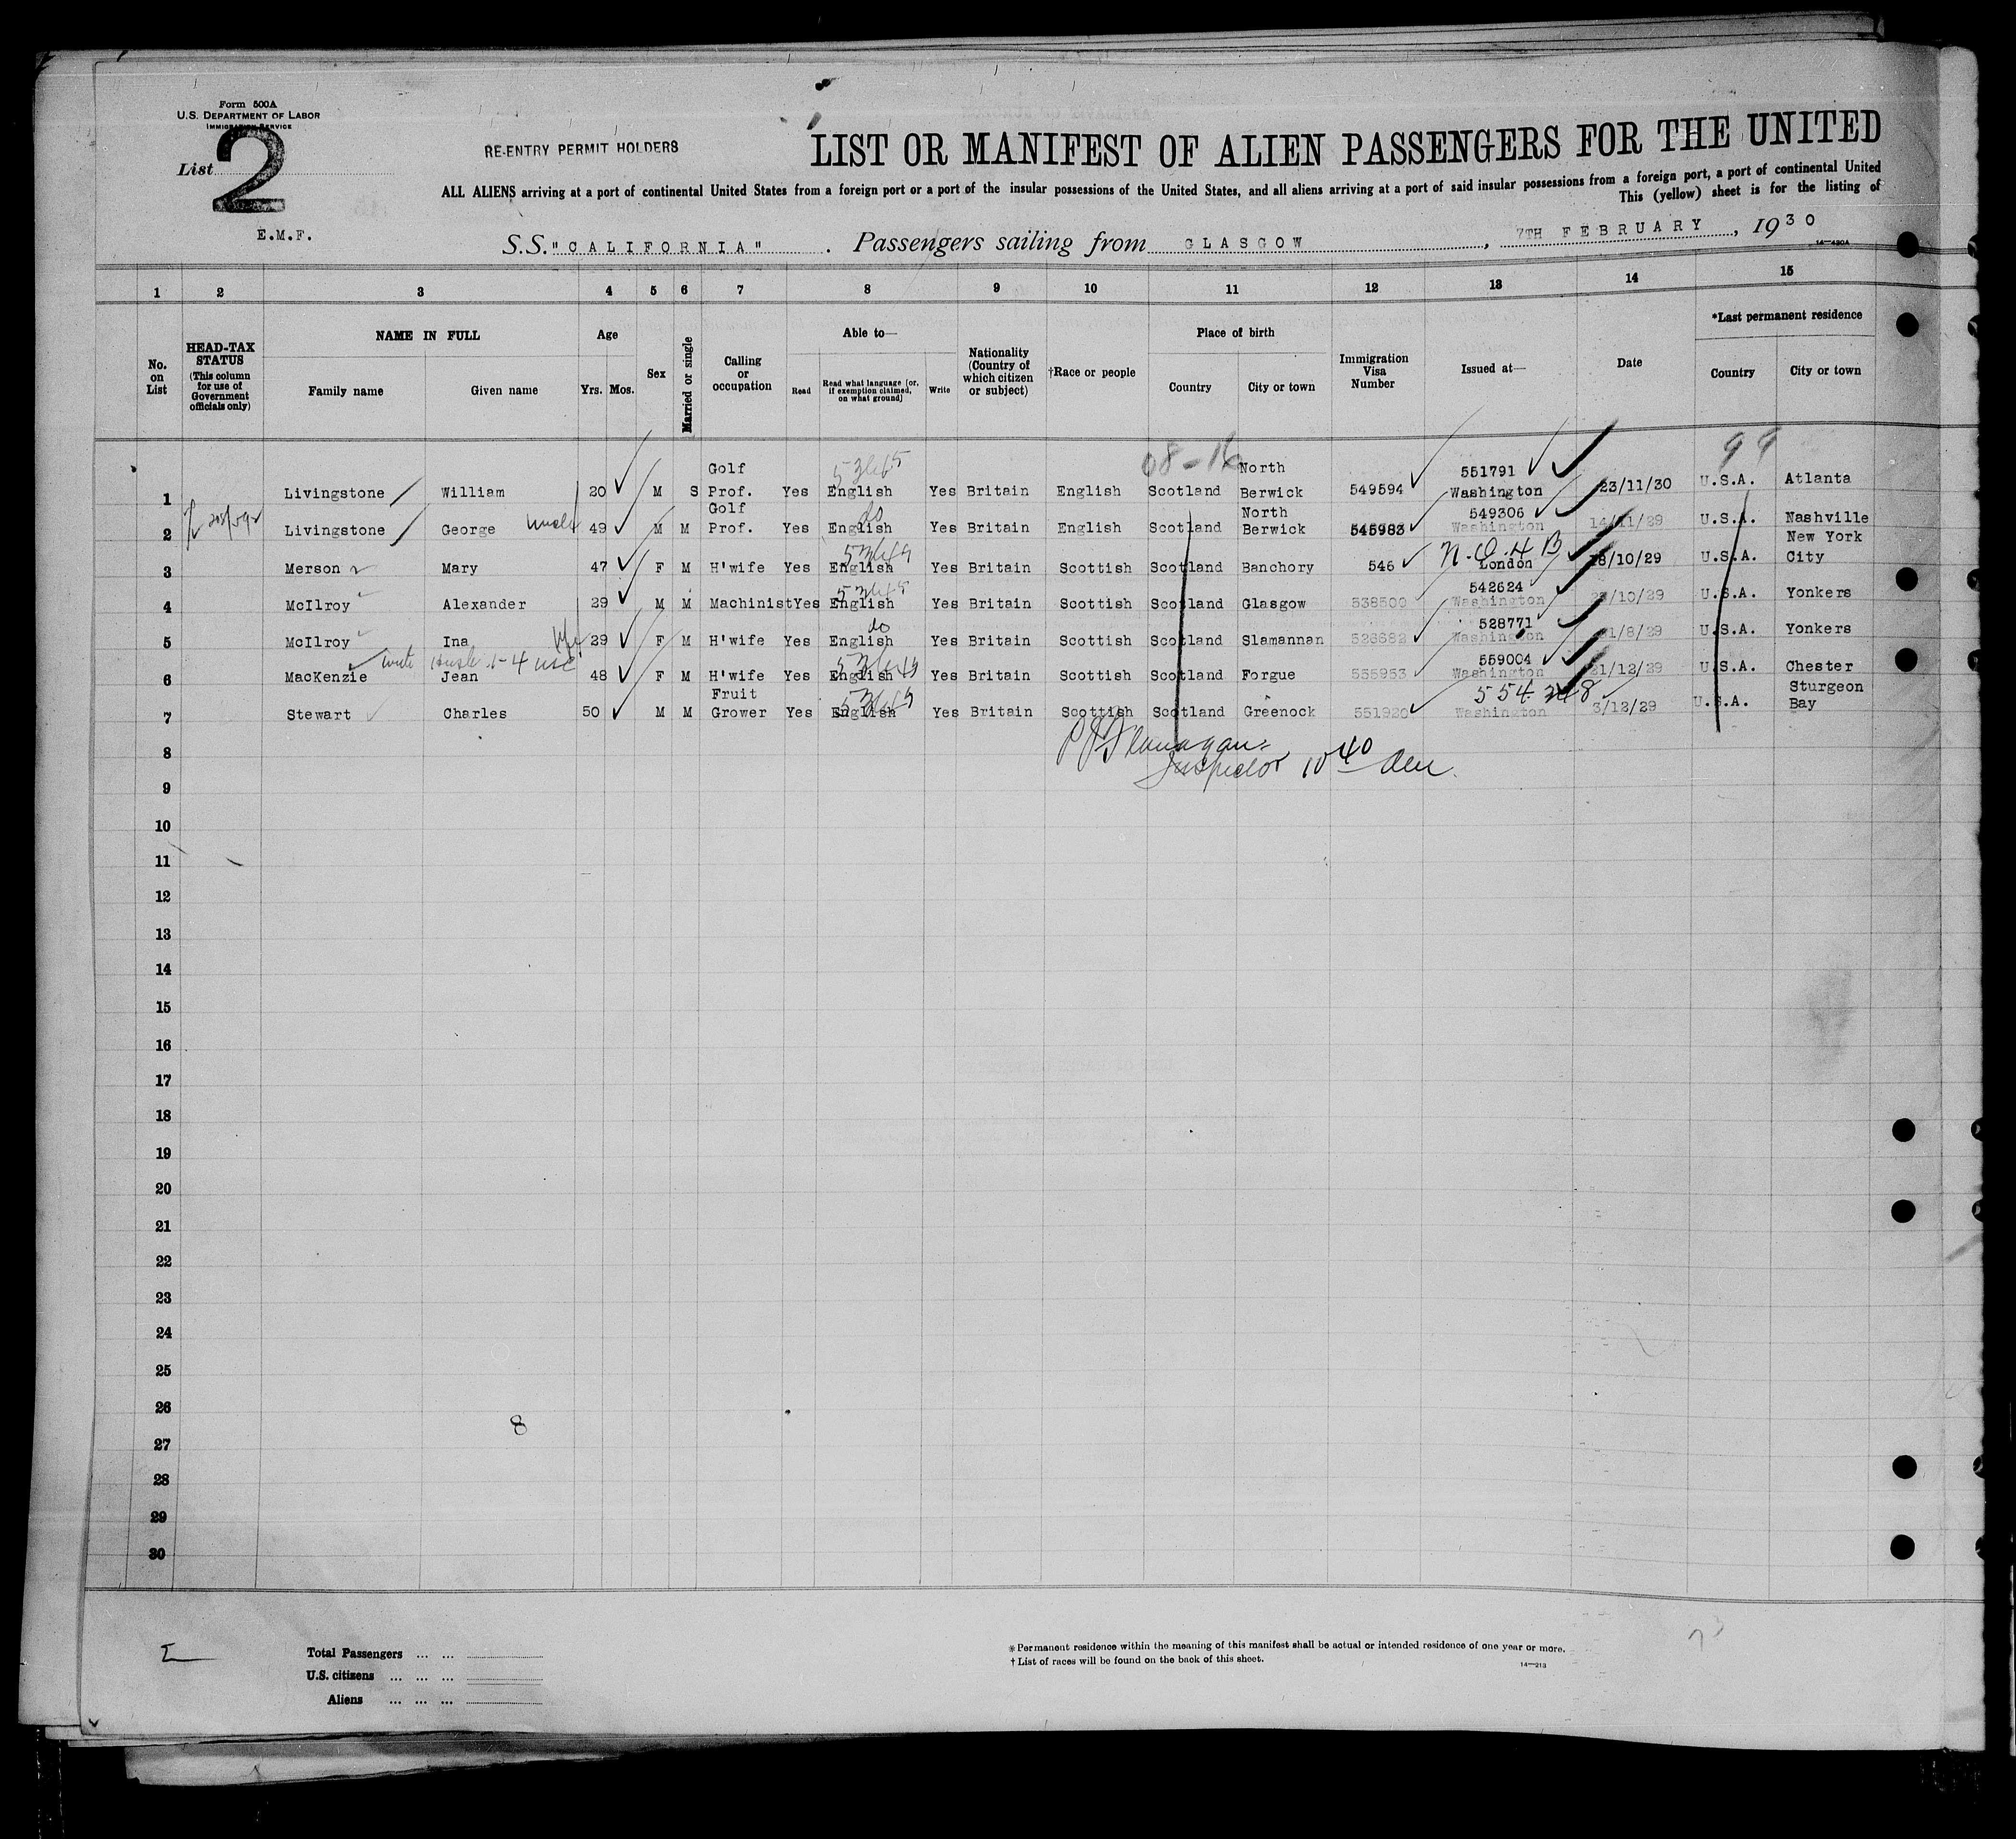 Form 500A
U.S. DEPARTMENT OF LABOR
IMMIGRATION SERVICE
List 2
E.M.F.
RE-ENTRY PERMIT HOLDERS
LIST OR MANIFEST OF ALIEN PASSENGERS FOR THE UNITED
ALL ALIENS arriving at a port of continental United States from a foreign port or a port of the insular possessions of the United States, and all aliens arriving at a port of said insular possessions from a foreign port, a port of continental United
This (yellow) sheet is for the listing of
S.S. "CALIFORNIA" . Passengers sailing from GLASGOW , 7TH FEBRUARY , 1930
14—430A
1 2 3 4 5 6 7 8 9 10 11 12 13 14 15
No. on List
HEAD-TAX STATUS (This column for use of Government officials only)
NAME IN FULL
Family name Given name
Age
Yrs. Mos.
Sex
Married or single
Calling or occupation
Able to—
Read Read what language (or, if exemption claimed, on what ground) Write
Nationality (Country of which citizen or subject)
†Race or people
Place of birth
Country City or town
Immigration Visa Number
Issued at—
Date
*Last permanent residence
Country City or town
08-16 99
Golf North 551791
1 Livingstone William 20 M S Prof. Yes English Yes Britain English Scotland Berwick 549594 Washington 23/11/30 U.S.A. Atlanta
Golf do North 549306
2 Livingstone George uncle 49 M M Prof. Yes English Yes Britain English Scotland Berwick 545983 Washington 14/11/29 U.S.A. Nashville
New York
3 Merson Mary 47 F M H'wife Yes English Yes Britain Scottish Scotland Banchory 546 London 18/10/29 U.S.A. City
542624
4 McIlroy Alexander 29 M M Machinist Yes English Yes Britain Scottish Scotland Glasgow 538500 Washington /10/29 U.S.A. Yonkers
do 528771
5 McIlroy Ina 29 F M H'wife Yes English Yes Britain Scottish Scotland Slamannan 526682 Washington /8/29 U.S.A. Yonkers
559004
6 MacKenzie Jean 48 F M H'wife Yes English Yes Britain Scottish Scotland Forgue 555953 Washington 21/12/29 U.S.A. Chester
Fruit 554248 Sturgeon
7 Stewart Charles 50 M M Grower Yes English Yes Britain Scottish Scotland Greenock 551920 Washington 3/12/29 U.S.A. Bay
8
Flanagan
Inspector 10 40
9
10
11
12
13
14
15
16
17
18
19
20
21
22
23
24
25
26
8
27
28
29
30
Total Passengers ... ...
U.S. citizens ... ... ...
Aliens ... ... ...
*Permanent residence within the meaning of this manifest shall be actual or intended residence of one year or more.
†List of races will be found on the back of this sheet.
14—213